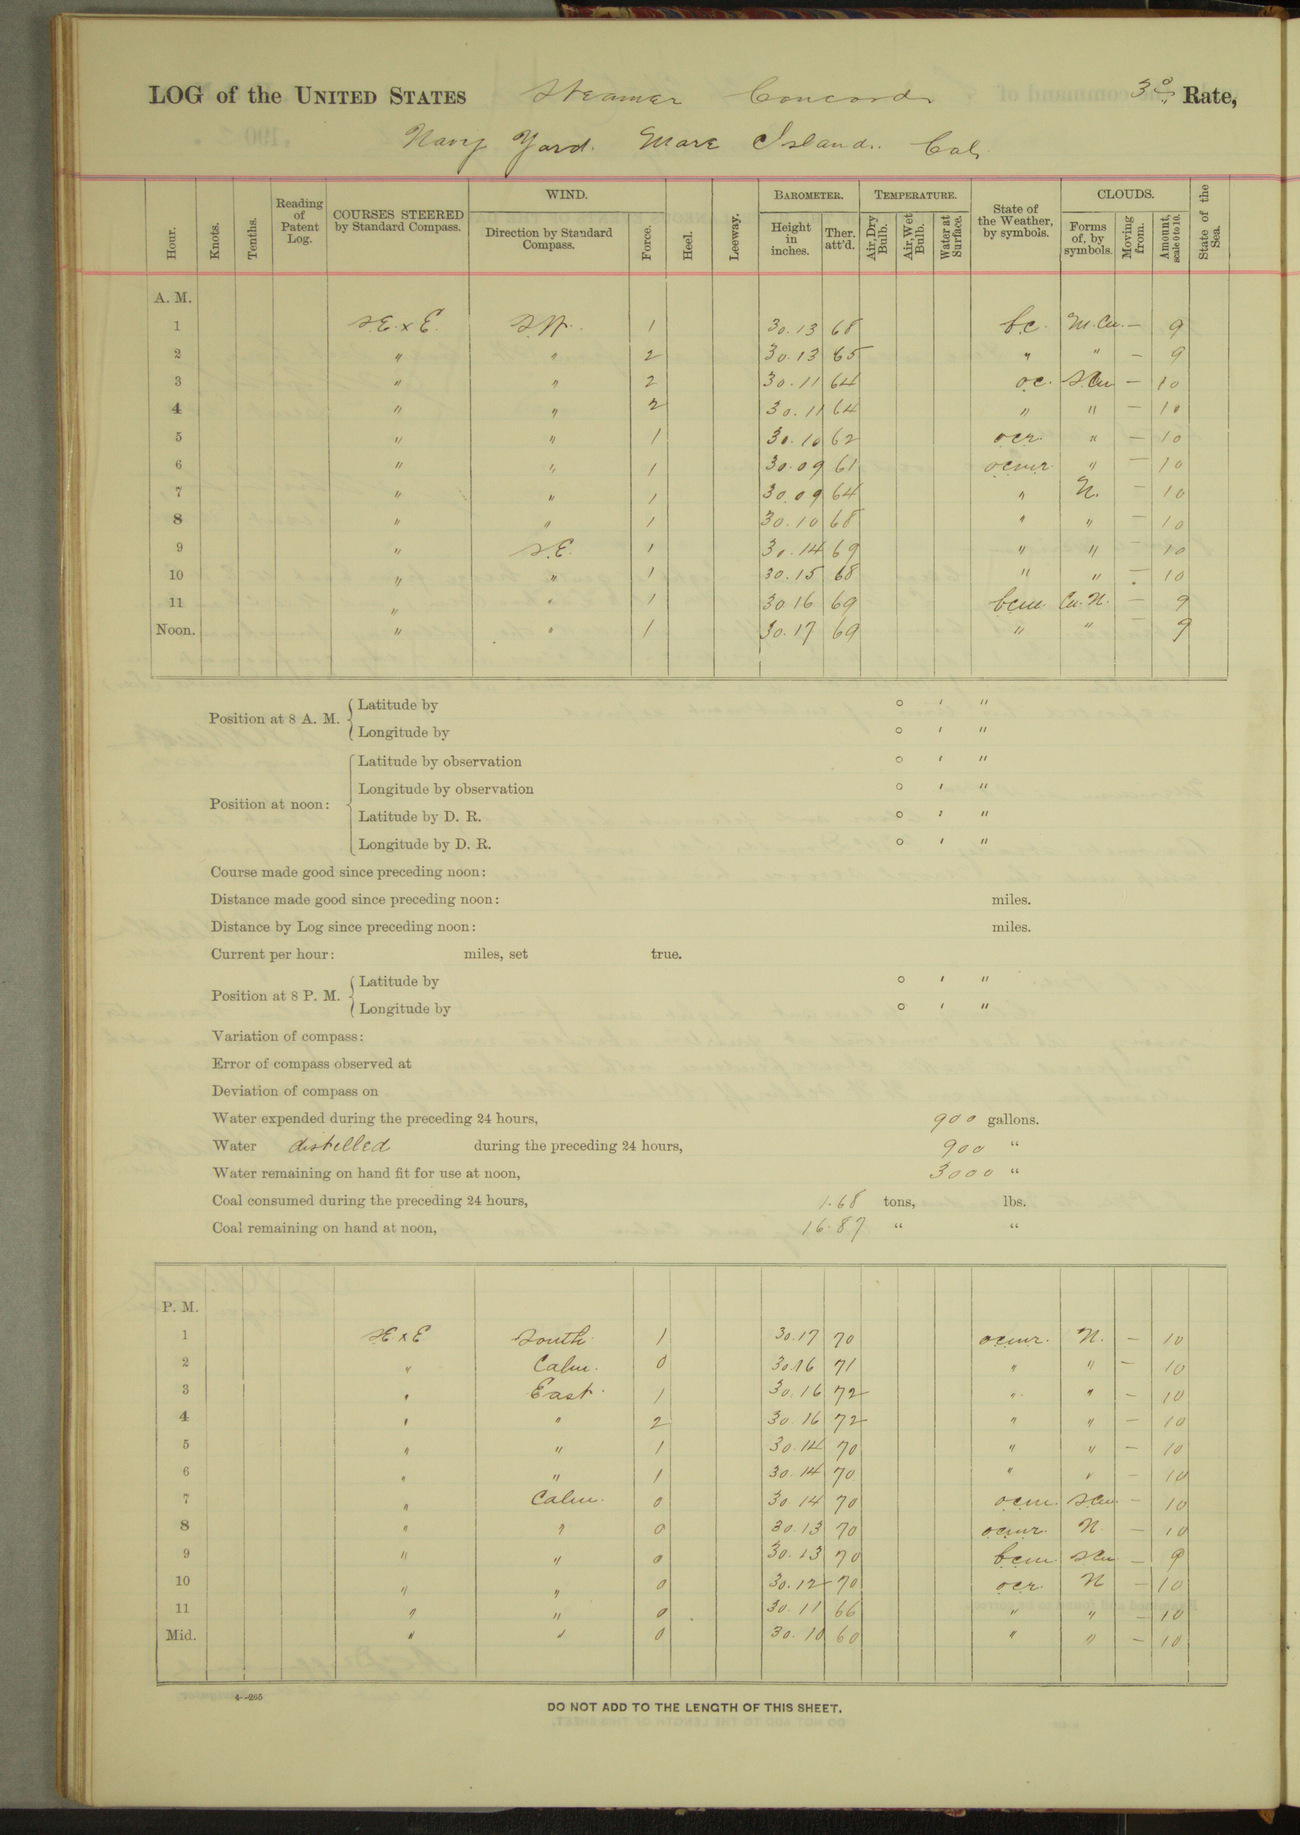 LOG of the UNITED STATES Steamer Concord 3d Rate,
Navy Yard. Mare Island. Cal.
Hour. Knots. Tenths. Reading of Patent Log. COURSES STEERED by Standard Compass. WIND. Direction by Standard Compass. Force. Heel. Leeway. BAROMETER. Height in inches. Ther. att'd. TEMPERATURE. Air, Dry Bulb. Air, Wet Bulb. Water at Surface. State of the Weather, by symbols. CLOUDS. Forms of, by symbols. Moving from. Amount, scale 0 to 10. State of the Sea.
A. M.
1 SE. x E. S.W. 1 30.13 68 b.c. M.Cu. — 9
2 " " 2 30.13 65 " " — 9
3 " " 2 30.11 64 oc. S.Cu — 10
4 " " 2 30.11 64 " " — 10
5 " " 1 30.10 62 ocr. " — 10
6 " " 1 30.09 61 ocmr " — 10
7 " " 1 30.09 64 " N. — 10
8 " " 1 30.10 68 " " — 10
9 " S.E. 1 30.14 69 " " — 10
10 " " 1 30.15 68 " " — 10
11 " " 1 30 16 69 bcm. Cu. N. — 9
Noon. " " 1 30.17 69 " " — 9
Position at 8 A. M. Latitude by ° ' "
Longitude by ° ' "
Position at noon: Latitude by observation ° ' "
Longitude by observation ° ' "
Latitude by D. R. ° ' "
Longitude by D. R. ° ' "
Course made good since preceding noon:
Distance made good since preceding noon: miles.
Distance by Log since preceding noon: miles.
Current per hour: miles, set true.
Position at 8 P. M. Latitude by ° ' "
Longitude by ° ' "
Variation of compass:
Error of compass observed at
Deviation of compass on
Water expended during the preceding 24 hours, 900 gallons.
Water distilled during the preceding 24 hours, 900 "
Water remaining on hand fit for use at noon, 3000 "
Coal consumed during the preceding 24 hours, 1.68 tons, lbs.
Coal remaining on hand at noon, 16.87 " "
P. M.
1 SE. x E South. 1 30.17 70 ocmr. N. — 10
2 " Calm. 0 30.16 71 " " — 10
3 " East. 1 30.16 72 " " — 10
4 " " 2 30.16 72 " " — 10
5 " " 1 30.14 70 " " — 10
6 " " 1 30.14 70 " " — 10
7 " Calm. 0 30 14 70 ocm. S.Cu. — 10
8 " " 0 30.13 70 ocmr. N. — 10
9 " " 0 30.13 70 bcm S.Cu — 9
10 " " 0 30.12 70 ocr. N — 10
11 " " 0 30.11 66 " " — 10
Mid. " " 0 30.10 60 " " — 10
4—265
DO NOT ADD TO THE LENGTH OF THIS SHEET.